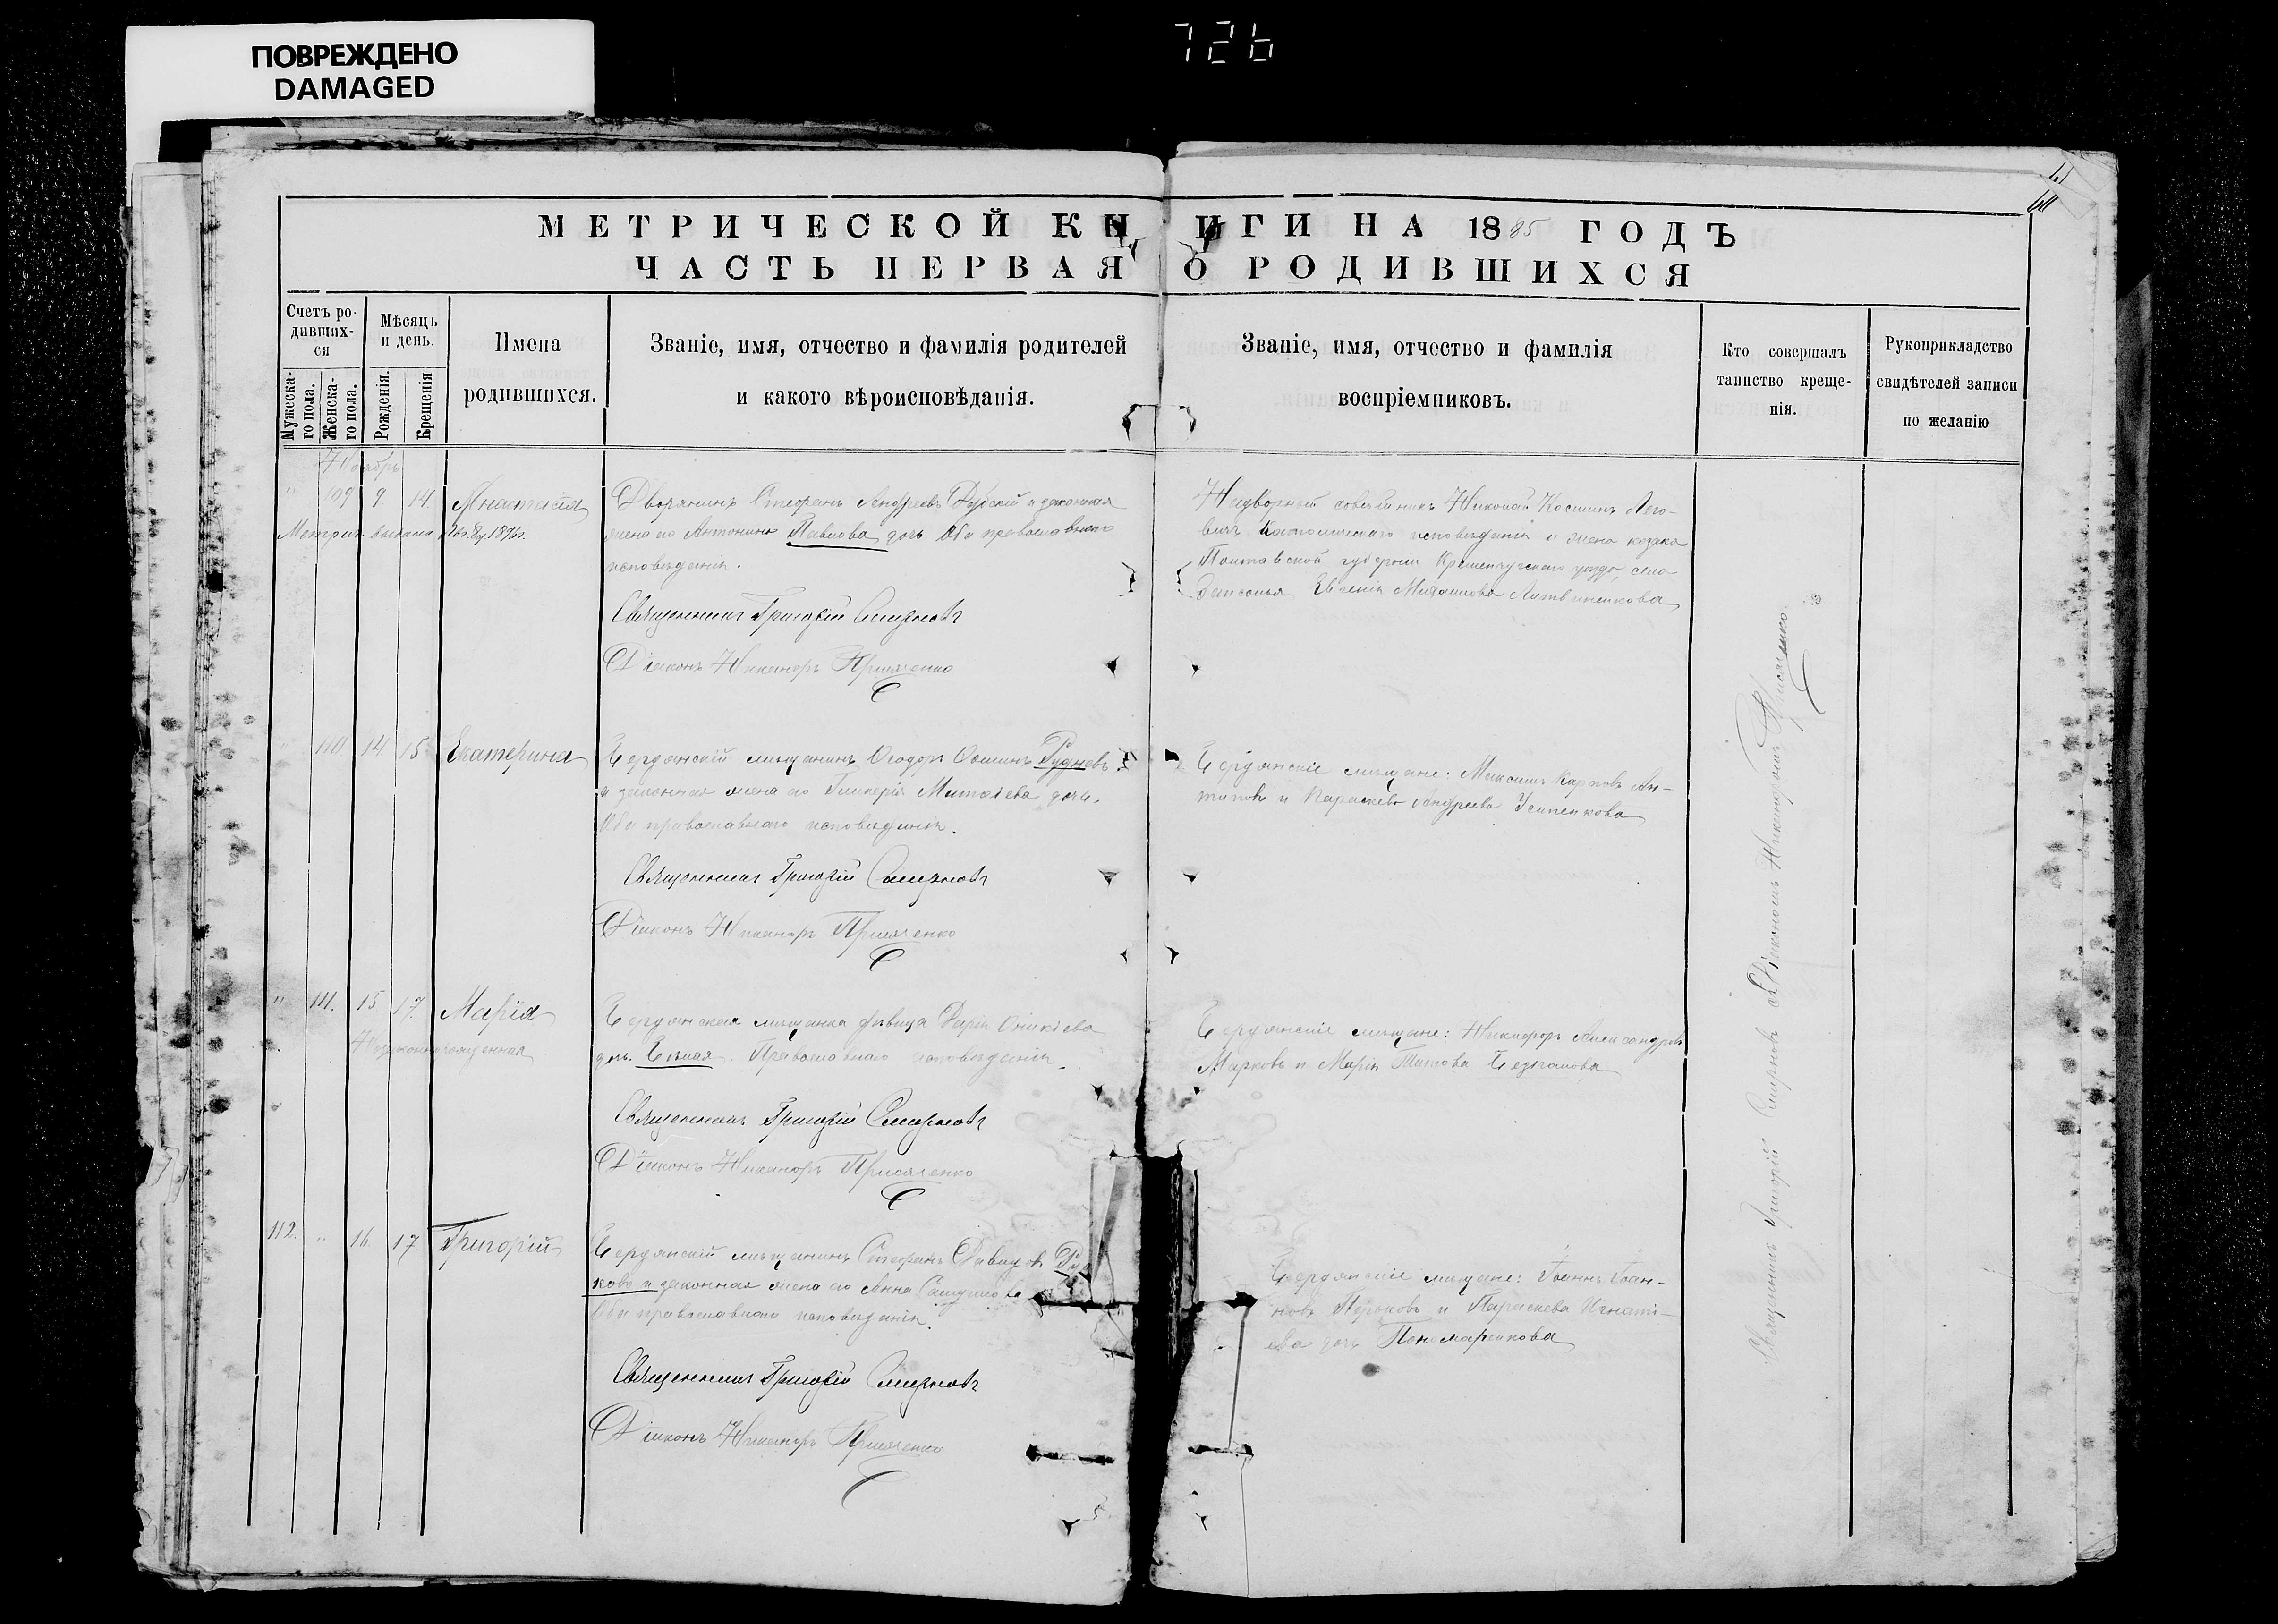 ПОВРЕЖДЕНО
DAMAGED
726
МЕТРИЧЕСКОЙ КНИГИ НА 1885 ГОДЪ
ЧАСТЬ ПЕРВАЯ О РОДИВШИХСЯ
Счетъ ро-
дивших-
ся
Мужеска-
го пола.
Женска-
го пола.
Мѣсяцъ
и день.
Рожденія.
Крещенія
Имена
родившихся.
Званіе, имя, отчество и фамилія родителей
и какого вѣроисповѣданія.
Званіе, имя, отчество и фамилія
воспріемниковъ.
Кто совершалъ
таинство креще-
нія.
Рукоприкладство
свидѣтелей записи
по желанію
Ноябрь
" 109 9 14 Анастасія
Метрич. выдана
Дворянинъ Стефанъ Андреевъ и законная
жена его Антонина Павлова дочь. Оба православнаго
исповѣданія.
Священникъ Григорій Смирновъ
Діаконъ Никаноръ Присяженко
Надворный совѣтникъ Николай
исповѣданія и жена козака
Полтавской губерніи Кременчугскаго уѣзда, села
Евгенія Михайлова Литвиненкова
110 14 15 Екатерина
Бердянскій мѣщанинъ Ѳеодоръ Рудневъ
и законная жена его Гликерія Матѳіева дочь.
Оба православнаго исповѣданія.
Священникъ Григорій Смирновъ
Діаконъ Никаноръ Присяженко
Бердянскіе мѣщане: Максимъ Карповъ Ан-
типовъ и Параскева Андреева Усипенкова
" 111. 15 17. Марія
Незаконнорожденная
Бердянская мѣщанка дѣвица Дарія
дочь. Православнаго исповѣданія.
Священникъ Григорій Смирновъ
Діаконъ Никаноръ Присяженко
Бердянскіе мѣщане: Никифоръ Александровъ
Марковъ и Марія Титова
112. " 16 17 Григорій
Бердянскій мѣщанинъ Стефанъ Давидовъ
и законная жена его Анна Самуилова
Оба православнаго исповѣданія.
Священникъ Григорій Смирновъ
Діаконъ Никаноръ Присяженко
Бердянскіе мѣщане: Іоаннъ Іоан-
новъ и Параскева Игнаті-
ева дочь Пономаренкова
Священникъ Григорій Смирновъ съ Діакономъ Никаноромъ Присяженко.